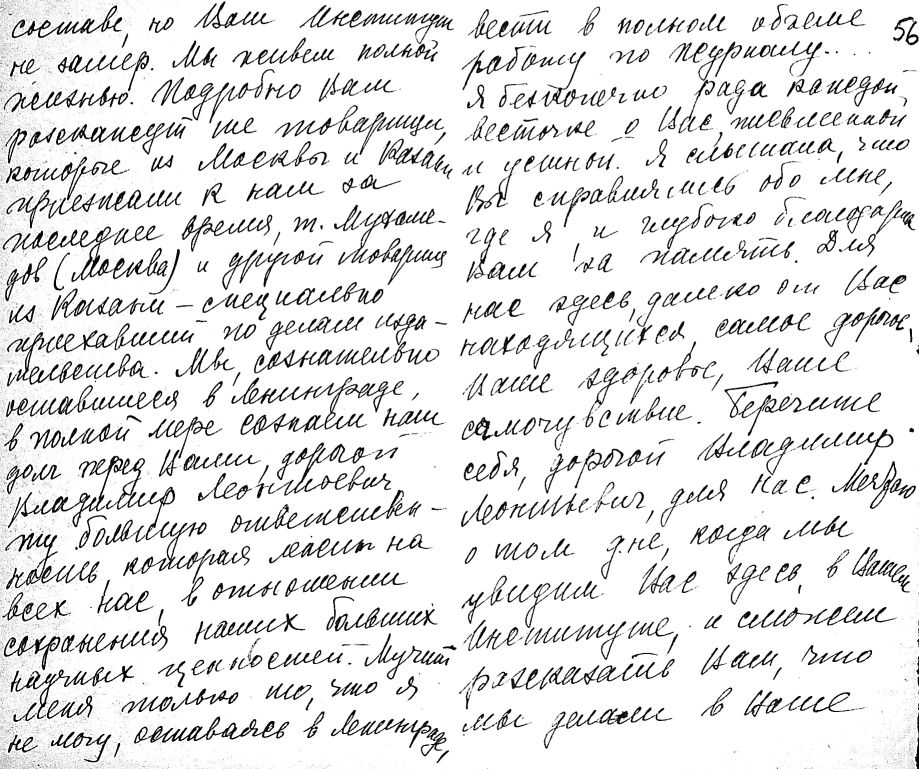 составе, но Ваш Институт
не замер. Мы живем полной
жизнью. Подробно Вам
расскажут те товарищи,
которые из Москвы и Казани
приезжали к нам за
последнее время, т. Мухаме-
дов (Москва) и другой товарищ
из Казани – специально
приехавший по делам изда-
тельства. Мы, сознательно
оставшиеся в Ленинграде,
в полной мере сознаем наш
долг перед Вами, дорогой
Владимир Леонтьевич,
ту большую ответствен-
ность, которая лежит на
всех нас, в отношении
сохранения наших больших
научных ценностей. Мучит
меня только то, что я
не могу, оставаясь в Ленинграде,
56
вести в полном объеме
работу по журналу....
Я бесконечно рада каждой
весточке о Вас, письменной
и устной. Я слышала, что
Вы справлялись обо мне,
где я, и глубоко благодарна
Вам за память. Для
нас здесь, далеко от Вас
находящихся, самое дорогое,
Ваше здоровье, Ваше
самочувствие. Берегите
себя, дорогой Владимир
Леонтьевич, для нас. Мечтаю
о том дне, когда мы
увидим Вас здесь, в Вашем
Институте, и сможем
рассказать Вам, что
мы делали в Ваше